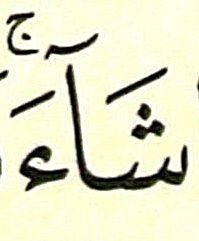 شَآءَۚ